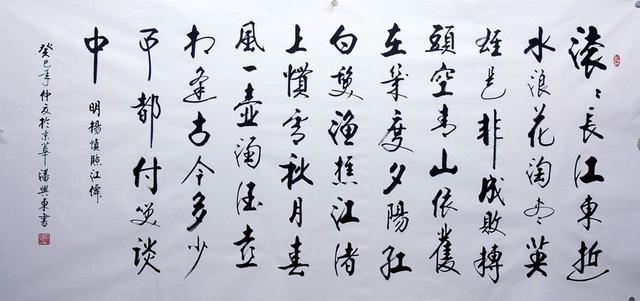 滚〻長江東逝
水浪花淘尽英
雄是非成敗轉
頭空青山依舊
在幾度夕陽紅
白髮漁樵江渚
上慣看秋月春
風一壺濁酒喜
相逢古今多少
事都付笑談
中
明楊慎臨江僊
癸巳年仲夏於京華潘興東書